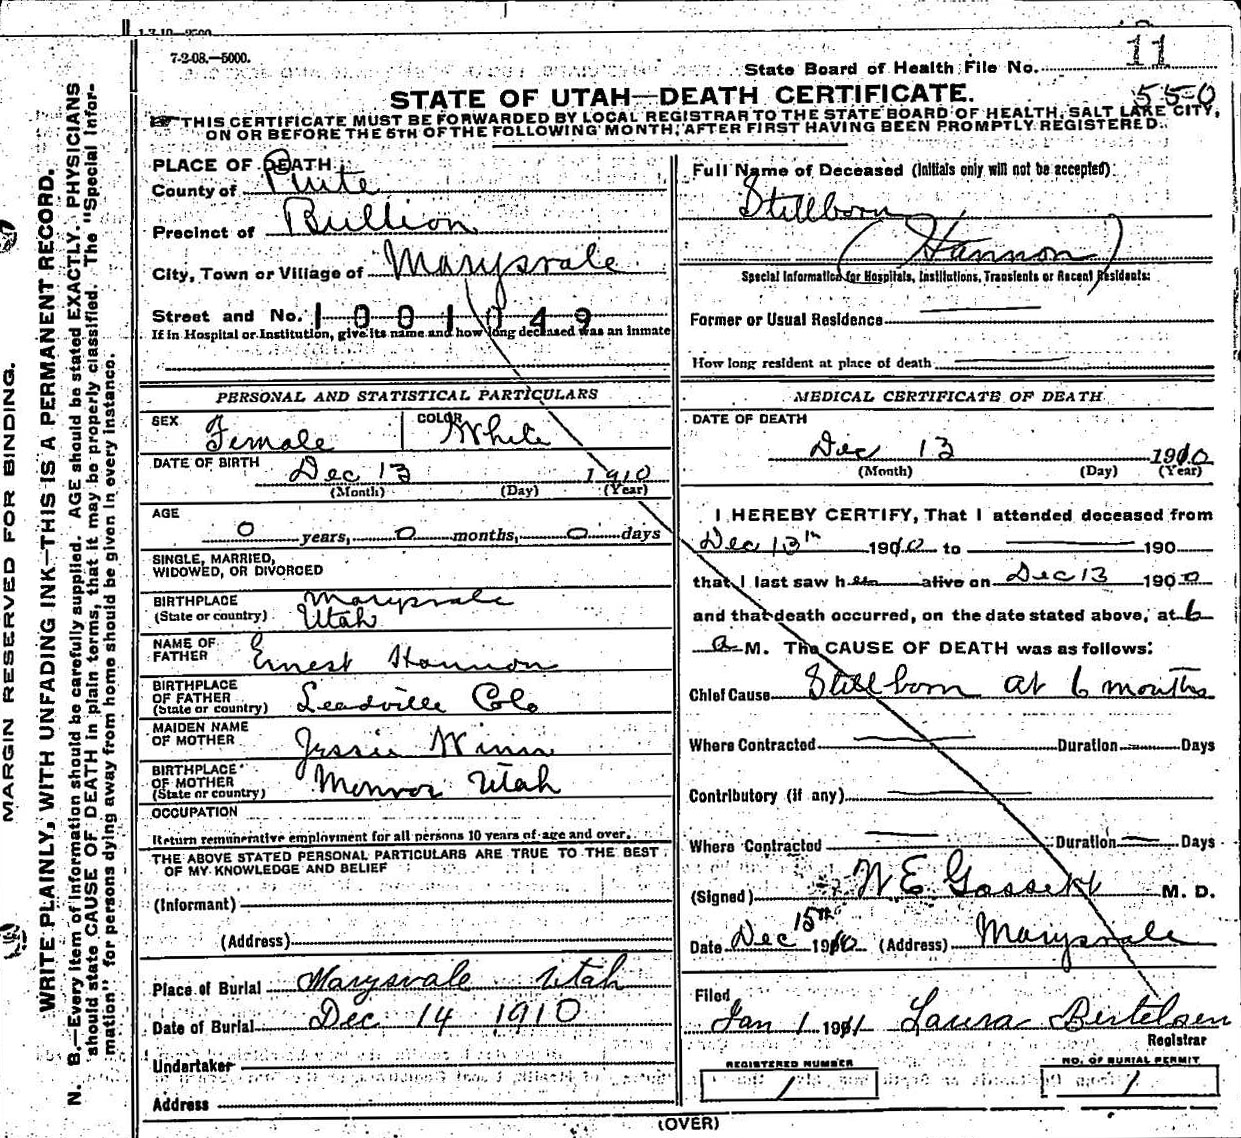 1-7-10-2500
7-2-08.—5000.
State Board of Health File No. 11
550
STATE OF UTAH—DEATH CERTIFICATE.
THIS CERTIFICATE MUST BE FORWARDED BY LOCAL REGISTRAR TO THE STATE BOARD OF HEALTH, SALT LAKE CITY,
ON OR BEFORE THE 5TH OF THE FOLLOWING MONTH, AFTER FIRST HAVING BEEN PROMPTLY REGISTERED.
MARGIN RESERVED FOR BINDING.
WRITE PLAINLY, WITH UNFADING INK—THIS IS A PERMANENT RECORD.
N. B.—Every item of information should be carefully supplied. AGE should be stated EXACTLY. PHYSICIANS
should state CAUSE OF DEATH in plain terms, that it may be properly classified. The "Special Infor-
mation" for persons dying away from home should be given in every instance.
PLACE OF DEATH:
County of Piute
Precinct of Bullion
City, Town or Village of Marysvale
Street and No. 1001049
If in Hospital or Institution, give its name and how long deceased was an inmate
PERSONAL AND STATISTICAL PARTICULARS
SEX Female COLOR White
DATE OF BIRTH Dec 13 1910
(Month) (Day) (Year)
AGE
0 years, 0 months, 0 days
SINGLE, MARRIED,
WIDOWED, OR DIVORCED
BIRTHPLACE Marysvale
(State or country) Utah
NAME OF
FATHER Ernest Hannon
BIRTHPLACE
OF FATHER Leadville Colo
(State or country)
MAIDEN NAME
OF MOTHER Jessie Winn
BIRTHPLACE
OF MOTHER Monroe Utah
(State or country)
OCCUPATION
Return remunerative employment for all persons 10 years of age and over.
THE ABOVE STATED PERSONAL PARTICULARS ARE TRUE TO THE BEST
OF MY KNOWLEDGE AND BELIEF
(Informant)
(Address)
Place of Burial Marysvale Utah
Date of Burial Dec 14 1910
Undertaker
Address
Full Name of Deceased (Initials only will not be accepted)
Stillborn
(Hannon)
Special Information for Hospitals, Institutions, Transients or Recent Residents:
Former or Usual Residence
How long resident at place of death
MEDICAL CERTIFICATE OF DEATH
DATE OF DEATH
Dec 13 1910
(Month) (Day) (Year)
I HEREBY CERTIFY, That I attended deceased from
Dec 13th 1910 to 190
that I last saw her alive on Dec 13 1900
and that death occurred, on the date stated above, at 6
a M. The CAUSE OF DEATH was as follows:
Chief Cause Stillborn at 6 months
Where Contracted Duration Days
Contributory (if any)
Where Contracted Duration Days
(Signed) W E Gossett M. D.
Date Dec 15th 1910 (Address) Marysvale
Filed
Jan 1 1911 Laura Bertelsen
Registrar
REGISTERED NUMBER
1
NO. OF BURIAL PERMIT
1
(OVER)